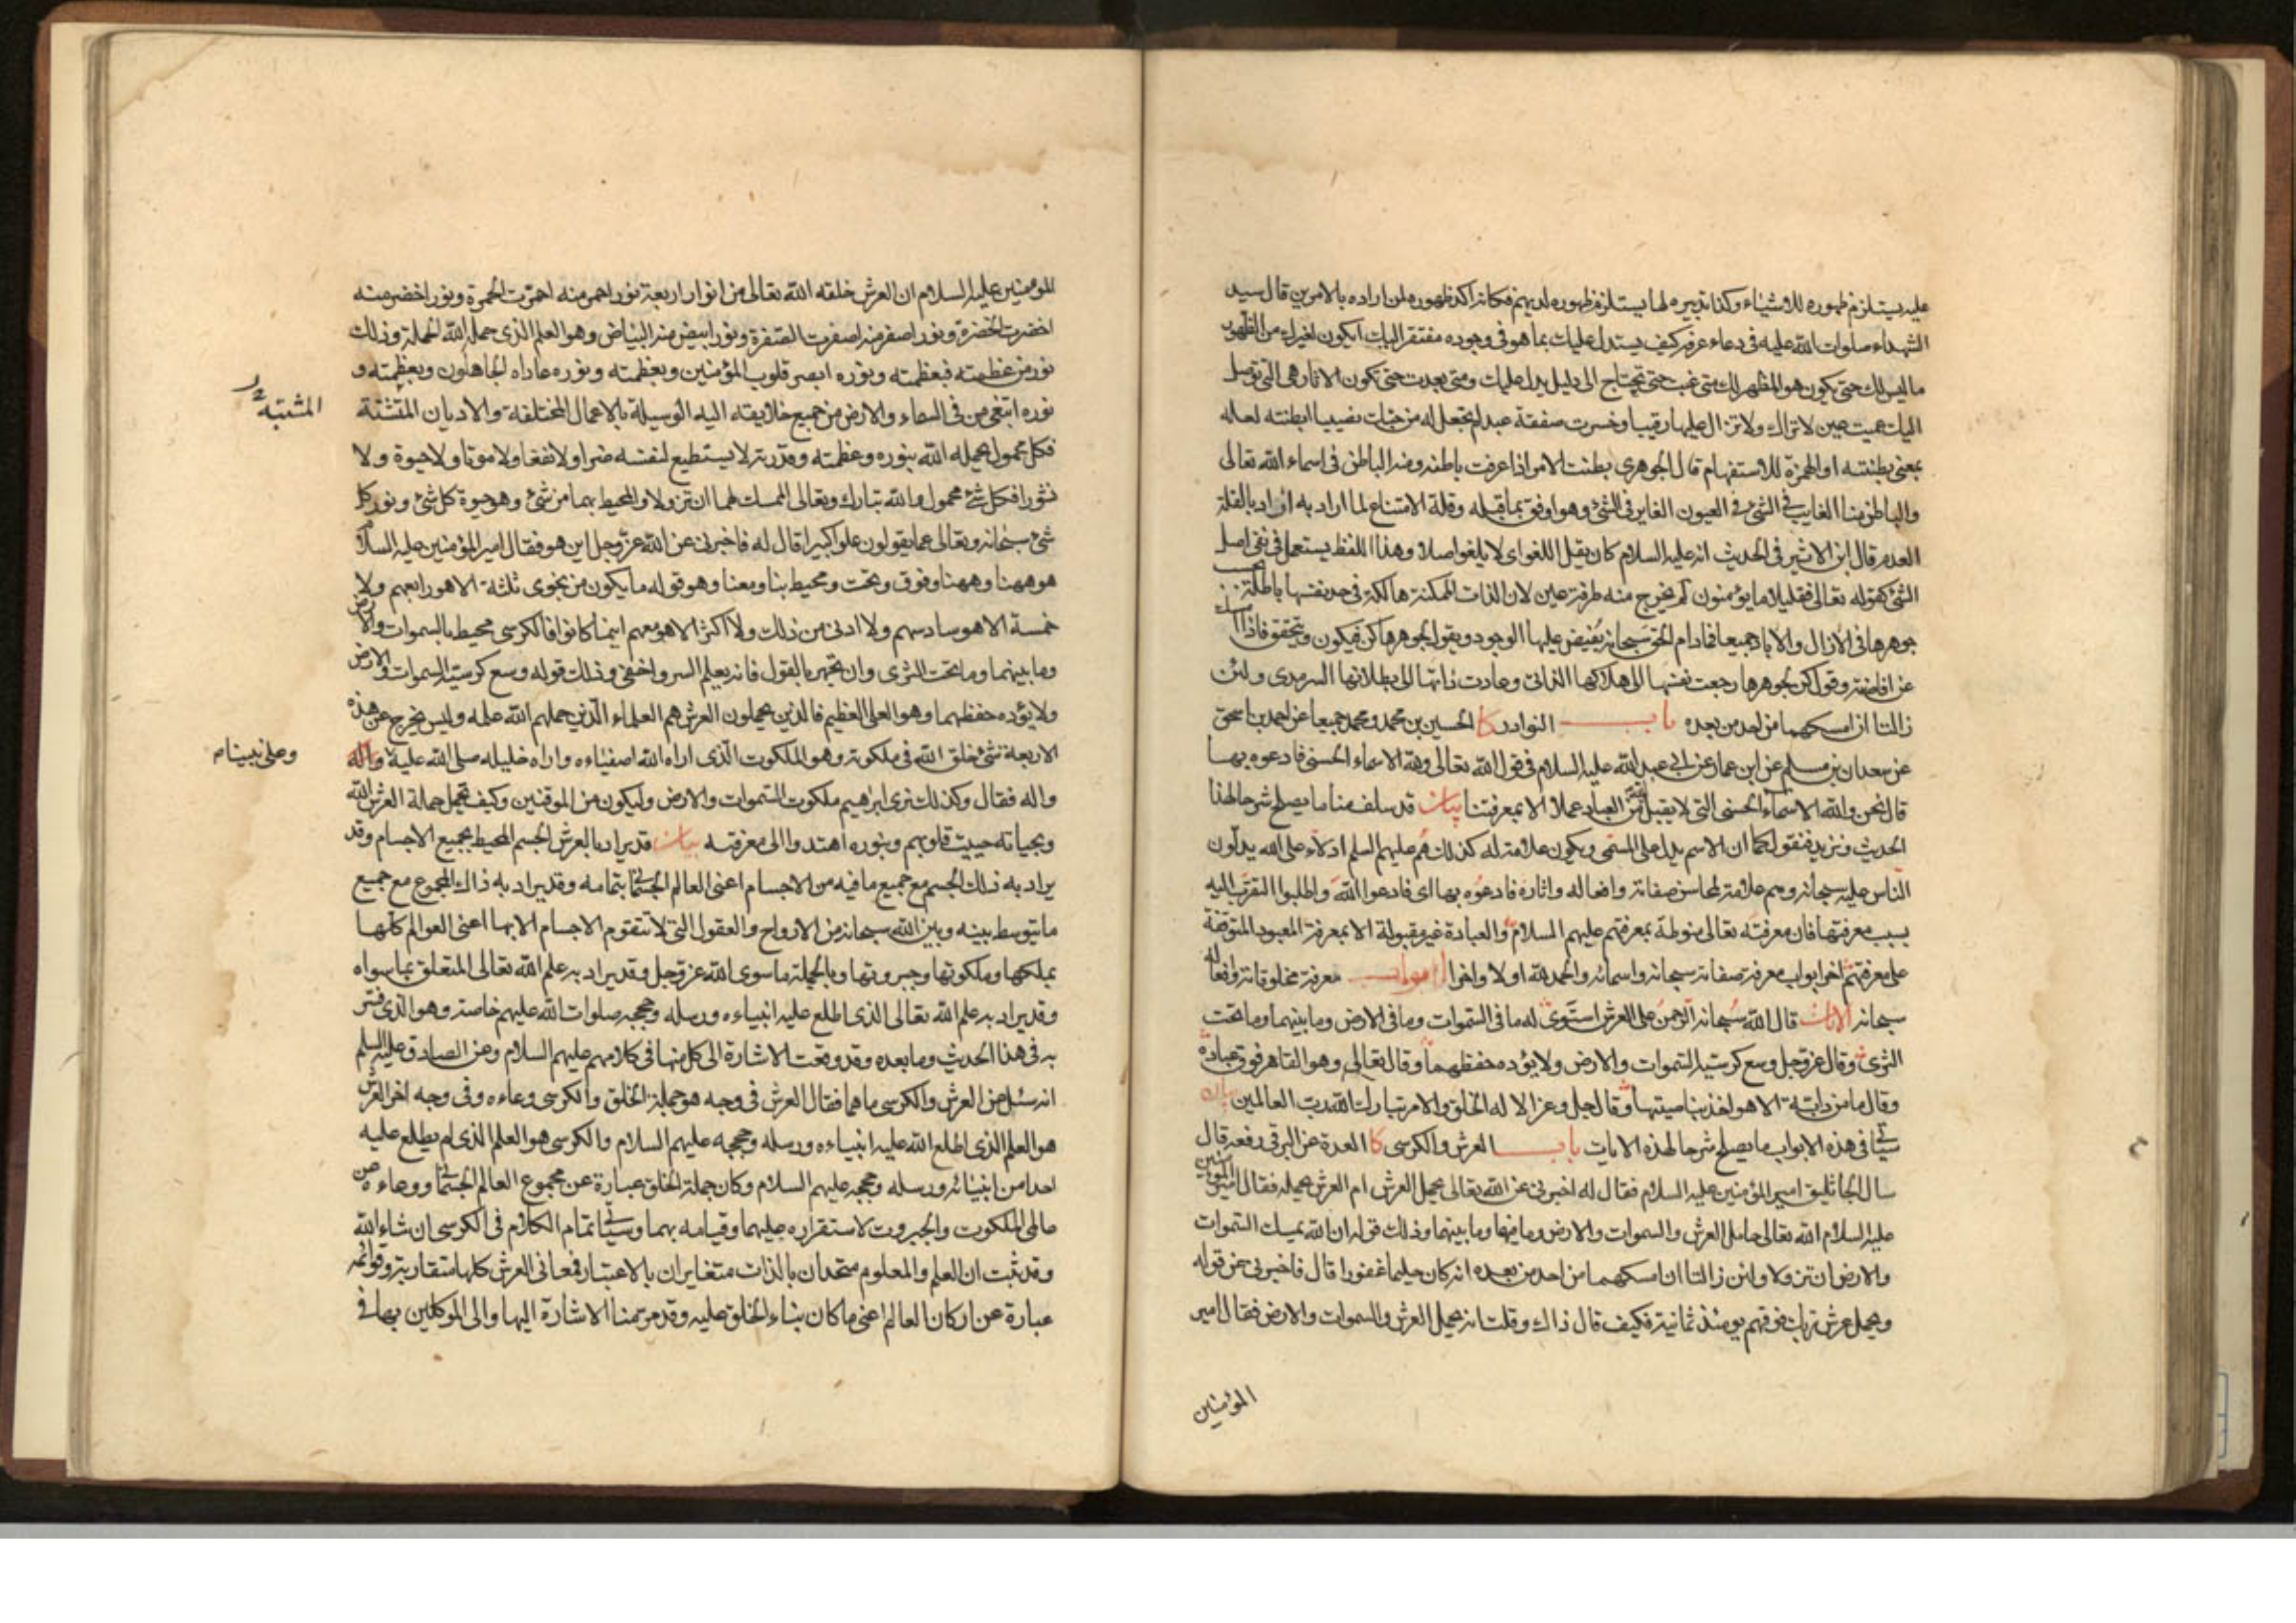 عليه يستلزم ظهوره للاشياء وكذا تدبيره لها يستلزم ظهوره لديهم فكانه اكد ظهوره لمن اراده بالامرين قال سيد
الشهداء صلوات الله عليه في دعاء عرفه كيف يستدل عليك بما هو في وجوده مفتقر اليك ايكون لغيرك من الظهور
ما ليس لك حتى يكون هو المظهر لك متى غبت حتى تحتاج الى دليل يدل عليك ومتى بعدت حتى تكون الاثار هي التي توصل
اليك عميت عين لا تراك ولا تزال عليها رقيبا وخسرت صفقة عبد لم تجعل له من حبك نصيبا ابطنته لعله
بمعنى بطنته او الهمزة للاستفهام قال الجوهري بطنت الامر اذا عرفت باطنه ومنه الباطن في اسماء الله تعالى
والباطن هنا الغايب في الشئ في العيون الغاير في الشئ وهو اوفق بما قبله وقلة الامتناع لما اراد به اراد بالقلة
العدم قال ابن الاثير في الحديث انه عليه السلام كان يقل اللغو اي لا يلغو اصلا وهذا اللفظ يستعمل في نفي اصل
الشئ كقوله تعالى فقليلا ما يؤمنون لم يخرج منه طرفة عين لان الذات الممكنة هالكة في حد نفسها باطلة
جوهرها في الازال والاباد جميعا فمادام الحق سبحانه يفيض عليها الوجود ويقول لجوهرها كن فيكون ويتحقق فاذا امسك
عن افاضته وقول كن لجوهرها رجعت نفسها الى هلاكها الذاتي وعادت ذاتها الى بطلانها السرمدي ولئن
زالتا ان امسكهما من احد من بعده باب النوادر كا الحسين بن محمد ومحمد جميعا عن احمد بن اسحق
عن سعدان بن مسلم عن ابن عمار عن ابي عبد الله عليه السلام في قول الله تعالى ولله الاسماء الحسنى فادعوه بها
قال نحن والله الاسماء الحسنى التي لا يقبل الله من العباد عملا الا بمعرفتنا بيان قد سلف منا ما يصلح شرحا لهذا
الحديث ونزيد فنقول كما ان الاسم يدل على المسمى ويكون علامة له كذلك هم عليهم السلم ادلاء على الله يدلون
الناس عليه سبحانه وهم علامة لمحاسن صفاته وافعاله واثاره فادعوه بها اي فادعوا الله واطلبوا التقرب اليه
بسبب معرفتها فان معرفته تعالى منوطة بمعرفتهم عليهم السلام والعبادة غير مقبولة الا بمعرفة المعبود المتوقفة
على معرفتهم اخر ابواب معرفة صفاته سبحانه واسمائه والحمد لله اولا واخرا ابواب معرفة مخلوقاته وافعاله
سبحانه الايات قال الله سبحانه الرحمن على العرش استوى له ما في السموات وما في الارض وما بينهما وما تحت
الثرى وقال عز وجل وسع كرسيه السموات والارض ولا يؤده حفظهما وقال تعالى وهو القاهر فوق عباده
وقال ما من دابة الا هو اخذ بناصيتها وقال جل وعز الا له الخلق والامر تبارك الله رب العالمين بيان
سياتي في هذه الابواب ما يصلح شرحا لهذه الايات باب العرش والكرسي كا العدة عن البرقي رفعه قال
سال الجاثليق امير المؤمنين عليه السلام فقال له اخبرني عن الله تعالى يحمل العرش ام العرش يحمله فقال امير المؤمنين
عليه السلام الله تعالى حامل العرش والسموات والارض وما فيها وما بينهما وذلك قوله ان الله يمسك السموات
والارض ان تزولا ولئن زالتا ان امسكهما من احد من بعده انه كان حليما غفورا قال فاخبرني عن قوله
ويحمل عرش ربك فوقهم يومئذ ثمانية فكيف قال ذاك وقلت انه يحمل العرش والسموات والارض فقال امير
المؤمنين
المؤمنين عليه السلام ان العرش خلقه الله تعالى من انوار اربعة نور احمر منه احمرت الحمرة ونور اخضر منه
اخضرت الخضرة ونور اصفر منه اصفرت الصفرة ونور ابيض منه البياض وهو العلم الذي حمله الله الحملة وذلك
نور من عظمته فبعظمته ونوره ابصر قلوب المؤمنين وبعظمته ونوره عاداه الجاهلون وبعظمته و
نوره ابتغى من في السماء والارض من جميع خلايقه اليه الوسيلة بالاعمال المختلفة والاديان المتشتتة
المشتبه
فكل محمول يحمله الله بنوره وعظمته وقدرته لا يستطيع لنفسه ضرا ولا نفعا ولا موتا ولا حيوة ولا
نشورا فكل شئ محمول والله تبارك وتعالى الممسك لهما ان تزولا والمحيط بهما من شئ وهو حيوة كل شئ ونور كل
شئ سبحانه وتعالى عما يقولون علوا كبيرا قال له فاخبرني عن الله عز وجل اين هو فقال امير المؤمنين عليه السلام
هو ههنا وههنا وفوق وتحت ومحيط بنا ومعنا وهو قوله ما يكون من نجوى ثلثة الا هو رابعهم ولا
خمسة الا هو سادسهم ولا ادنى من ذلك ولا اكثر الا هو معهم اينما كانوا فالكرسي محيط بالسموات والارض
وما بينهما وما تحت الثرى وان تجهر بالقول فانه يعلم السر واخفى وذلك قوله وسع كرسيه السموات والارض
ولا يؤده حفظهما وهو العلي العظيم فالذين يحملون العرش هم العلماء الذين حملهم الله علمه وليس يخرج عن هذه
الاربعة شئ خلق الله في ملكوته وهو الملكوت الذي اراه الله اصفياءه واراه خليله صلى الله عليه واله
وعلى نبينا
واله فقال وكذلك نري ابرهيم ملكوت السموات والارض وليكون من الموقنين وكيف تحمل حملة العرش الله
وبحياته حييت قلوبهم وبنوره اهتدوا الى معرفته بيان قد يراد بالعرش الجسم المحيط بجميع الاجسام وقد
يراد به ذلك الجسم مع جميع ما فيه من الاجسام اعني العالم الجسماني بتمامه وقد يراد به ذاك المجموع مع جميع
ما يتوسط بينه وبين الله سبحانه من الارواح والعقول التي لا تتقوم الاجسام الا بها اعني العوالم كلها
بملكها وملكوتها وجبروتها وبالجملة ما سوى الله عز وجل وقد يراد به علم الله تعالى المتعلق بما سواه
وقد يراد به علم الله تعالى الذي اطلع عليه انبياءه ورسله وحججه صلوات الله عليهم خاصة وهو الذي فسر
به في هذا الحديث وما بعده وقد وقعت الاشارة الى كل منها في كلامهم عليهم السلام وعن الصادق عليه السلم
انه سئل عن العرش والكرسي ما هما فقال العرش في وجه هو جملة الخلق والكرسي وعاءه وفي وجه اخر العرش
هو العلم الذي اطلع الله عليه انبياءه ورسله وحججه عليهم السلام والكرسي هو العلم الذي لم يطلع عليه
احدا من انبيائه ورسله وحججه عليهم السلام وكان جملة الخلق عبارة عن مجموع العالم الجسماني ووعاءه عن
عالمي الملكوت والجبروت لاستقراره عليهما وقيامه بهما وسياتي تمام الكلام في الكرسي ان شاء الله
وقد ثبت ان العلم والمعلوم متحدان بالذات متغايران بالاعتبار فمعاني العرش كلها متقاربة وقوائمه
عبارة عن اركان العالم اعني ما كان بناء الخلق عليه وقد مر منا الاشارة اليها والى الموكلين بها في